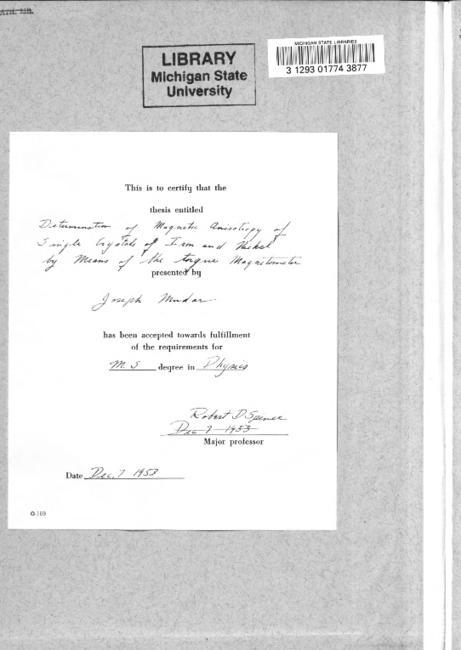 LIBRARY
Michigan State
University
MICHIGAN STATE LIBRARIES
3 1293 01774 3877
This is to certify that the
thesis entitled
Determination of Magnetic Anisotropy of
Single Crystals of Iron and Nickel
by Means of the torque Magnetometer
presented by
Joseph Mudar
has been accepted towards fulfillment
of the requirements for
M. S degree in Physics
Robert D. Spence
Dec 7 1953
Major professor
Date Dec. 7 1953
O-169